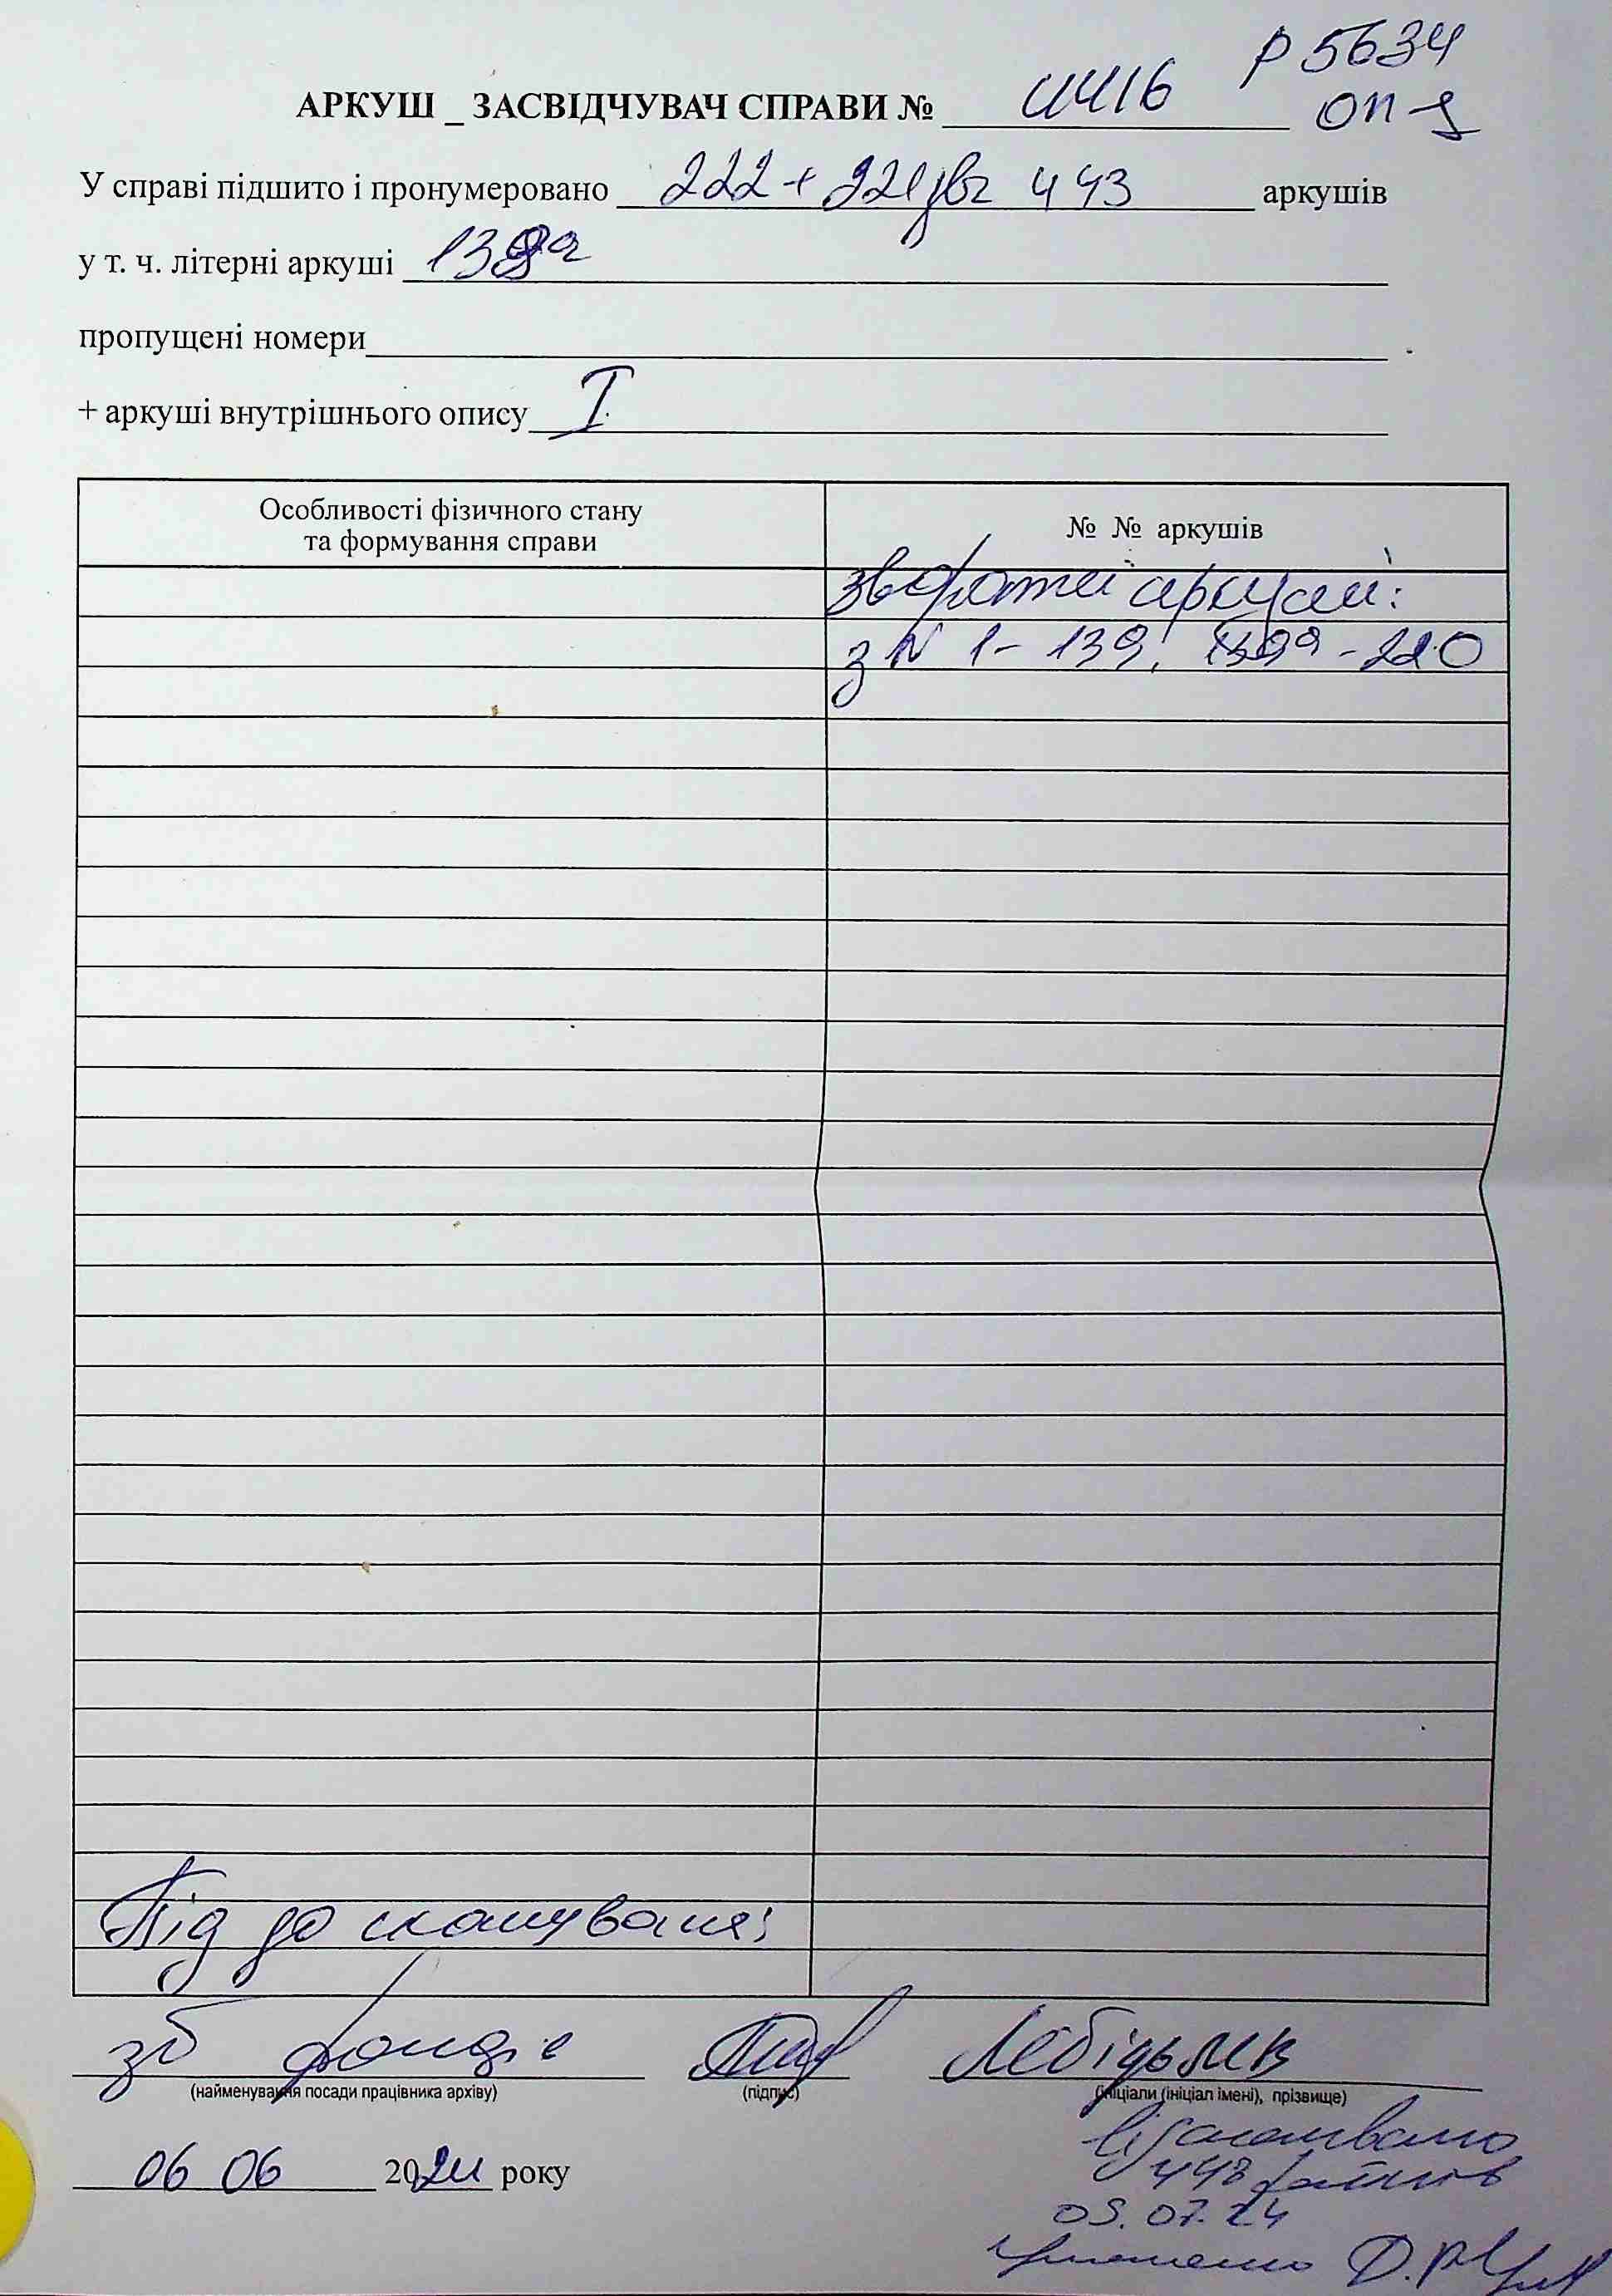 Р 5634
АРКУШ _ ЗАСВІДЧУВАЧ СПРАВИ № 4416 оп-1
У справі підшито і пронумеровано 222 + 221 зв 443 аркушів
у т. ч. літерні аркуші 139а
пропущені номери
+ аркуші внутрішнього опису I
Особливості фізичного стану та формування справи
№ № аркушів
зворотні аркуші:
з N 1 - 139, 139а - 220
Під до сканування:
зб фондів Лебідь МВ
(найменування посади працівника архіву) (підпис) (ініціали (ініціал імені), прізвище)
Відскановано
448 файлів
06 06 2024 року
05.07.24